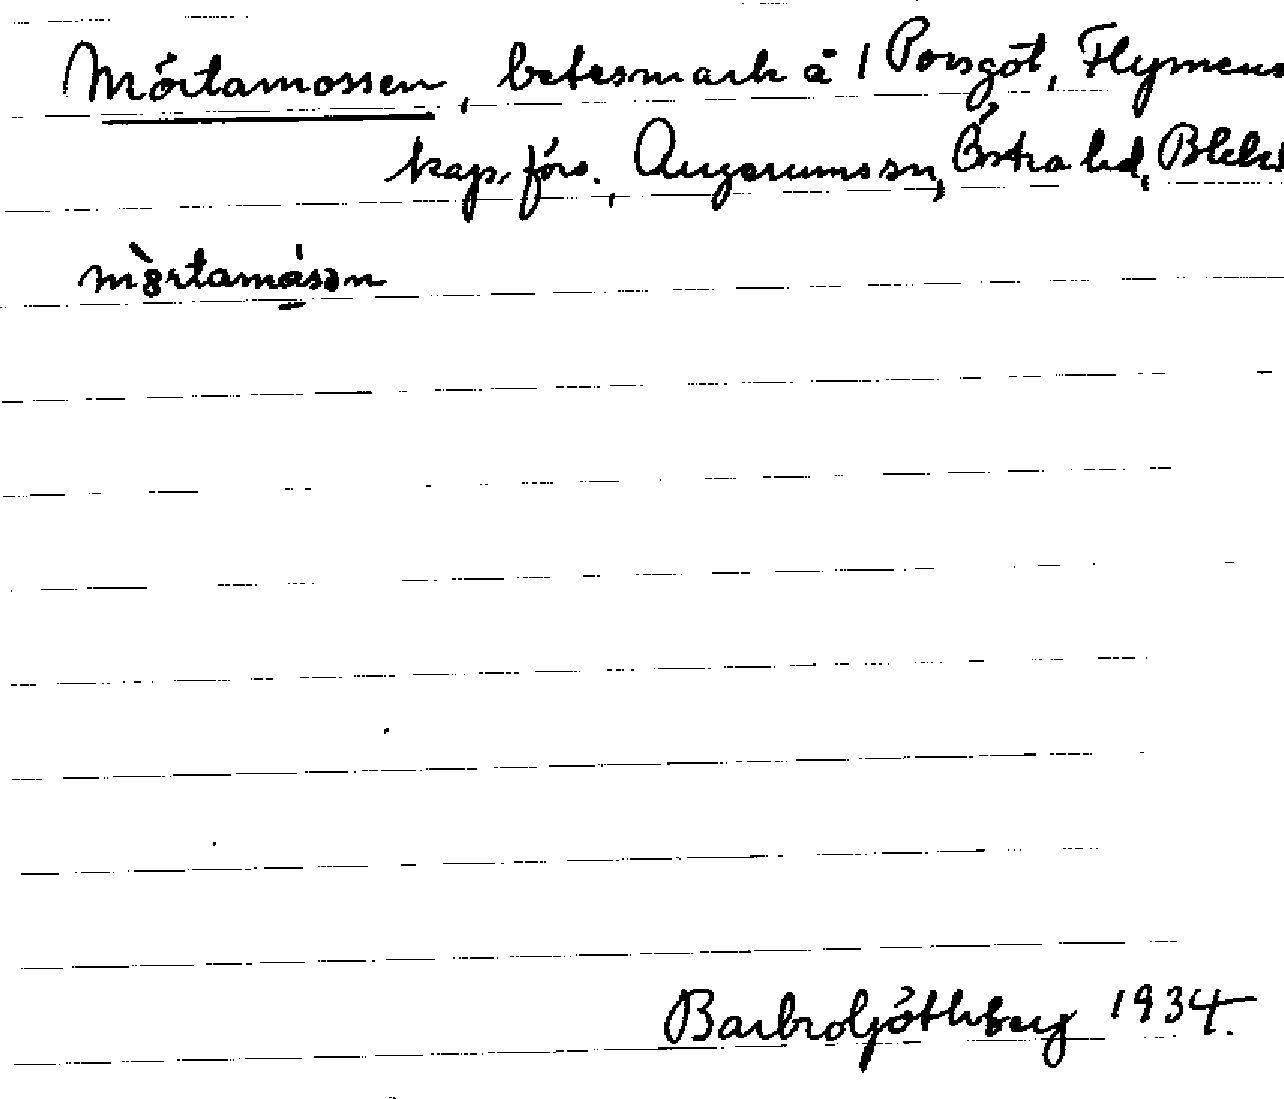 Mörtamossen, betesmark å 1 Porsgöt, Flymens
kap. förs., Augerums sn, Östra hd, Blek
mörtamåsən
Barbro Göthberg 1934.